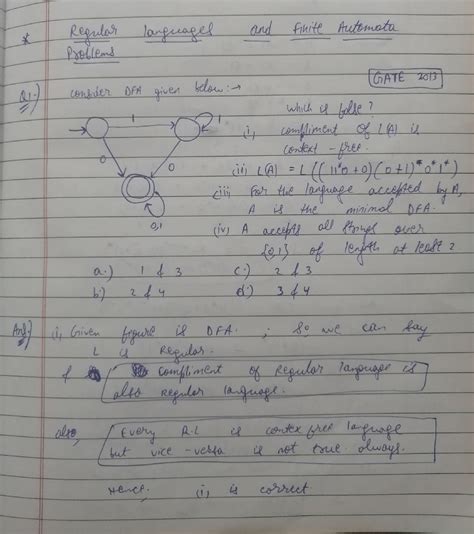 * Regular languages and Finite Automata
Problems
GATE 2013
Q1.) consider DFA given below :→
1
1
0
0
0,1
Which is false?
(i, compliment of L(A) is
context-free.
(ii) L(A) = L((11*0+0)(0+1)*0*1*)
(iii) For the language accepted by A,
A is the minimal DFA.
(iv) A accepts all strings over
{0,1} of length at least 2
a.) 1 & 3 c.) 2 & 3
b.) 2 & 4 d.) 3 & 4
Ans.) (i, Given figure is DFA. ; So, we can say
L is Regular.
& Compliment of Regular language is
also regular language.
also, Every R.L is contex free language
but vice-versa is not true always.
Hence, (i, is correct